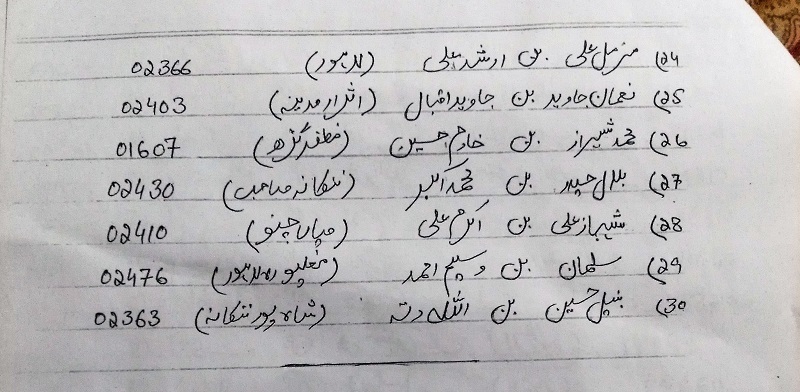 24) مزمل علی بن ارشد علی (لاہور) 02366
25) نعمان جاوید بن جاوید اقبال (مدینہ) 02403
26) محمد شیراز بن خادم حسین (مظفرگڑھ) 01607
27) بلال حیدر بن محمد اکبر (ننکانہ صاحب) 02430
28) شہباز علی بن اکرم علی (میاں چنو) 02410
29) سلمان بن وسیم احمد (مغلپورہ لاہور) 02476
30) حسین بن اللہ دتہ (شاہ پور ننکانہ) 02363